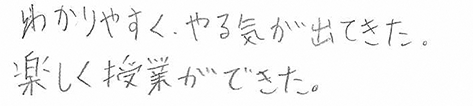 わかりやすく、やる気が出てきた。
楽しく授業ができた。